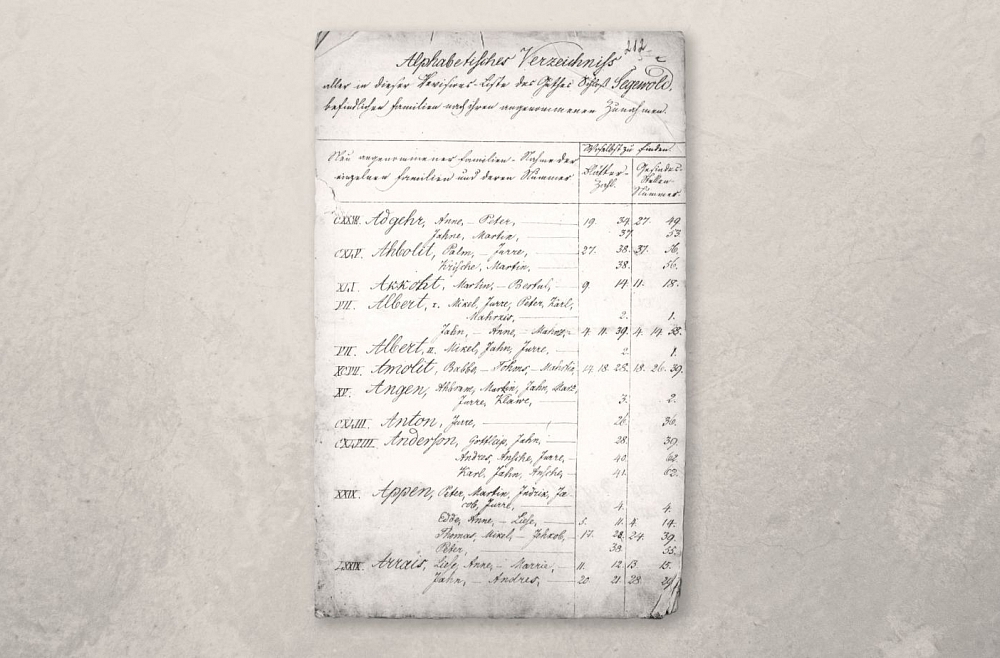 212
Alphabetisches Verzeichniss
aller in dieser Revisions-Liste des Guthes Schloß Segewold,
befindlichen Familien nach ihren angenommenen Zunahmen.
Woselbst zu finden
Neu angenommener Familien-Nahme der
einzelnen Familien und deren Nummer
Blätter-Zahl.
Gesindes-Stellen Nummer.
Adgehr, Anne, – Peter, 19. 34. 27. 49.
Jahne, Martin, 37. 53
Ahbolit, Palm, – Jurre, 27. 38. 37. 56.
Krische, Martin, 38. 56.
XLI. Akkoht, Martin, – Bertul, 9. 14. 11. 18.
VII. Albert, I. Mikel, Jurre, Peter, Karl,
2. 1.
Jahn, – Anne, – 4. 11. 39. 4. 14. 58.
Albert, II. Mikel, Jahn, Jurre, 2. 1.
XCVII. Amolit, Babbe, – 14. 18. 25. 18. 26. 39.
XV. Angen, Ahbram, Martin, Jahn,
Jurre, Klawe, 3. 2.
CXLIII. Anton, Jurre, 26. 36.
CXLVIII. Anderson, Gottlieb, Jahn, 28. 39.
Andres, Ansche, Jurre, 40. 62.
Karl, Jahn, Ansche, 41. 63.
XXIX. Appen, Peter, Martin, Indrik, Ja-
cob, Jurre, 4. 4.
Edde, Anne, – Liese, 5. 11. 4. 14.
Thomas, Mikel, – Jehkob, 17. 28. 24. 39.
Peter, 38. 55.
LXXIX. Arrais, Liese, Anne, – Marrie, 11. 12. 13. 15.
Jahn, – Andres, 20. 21. 28. 29.